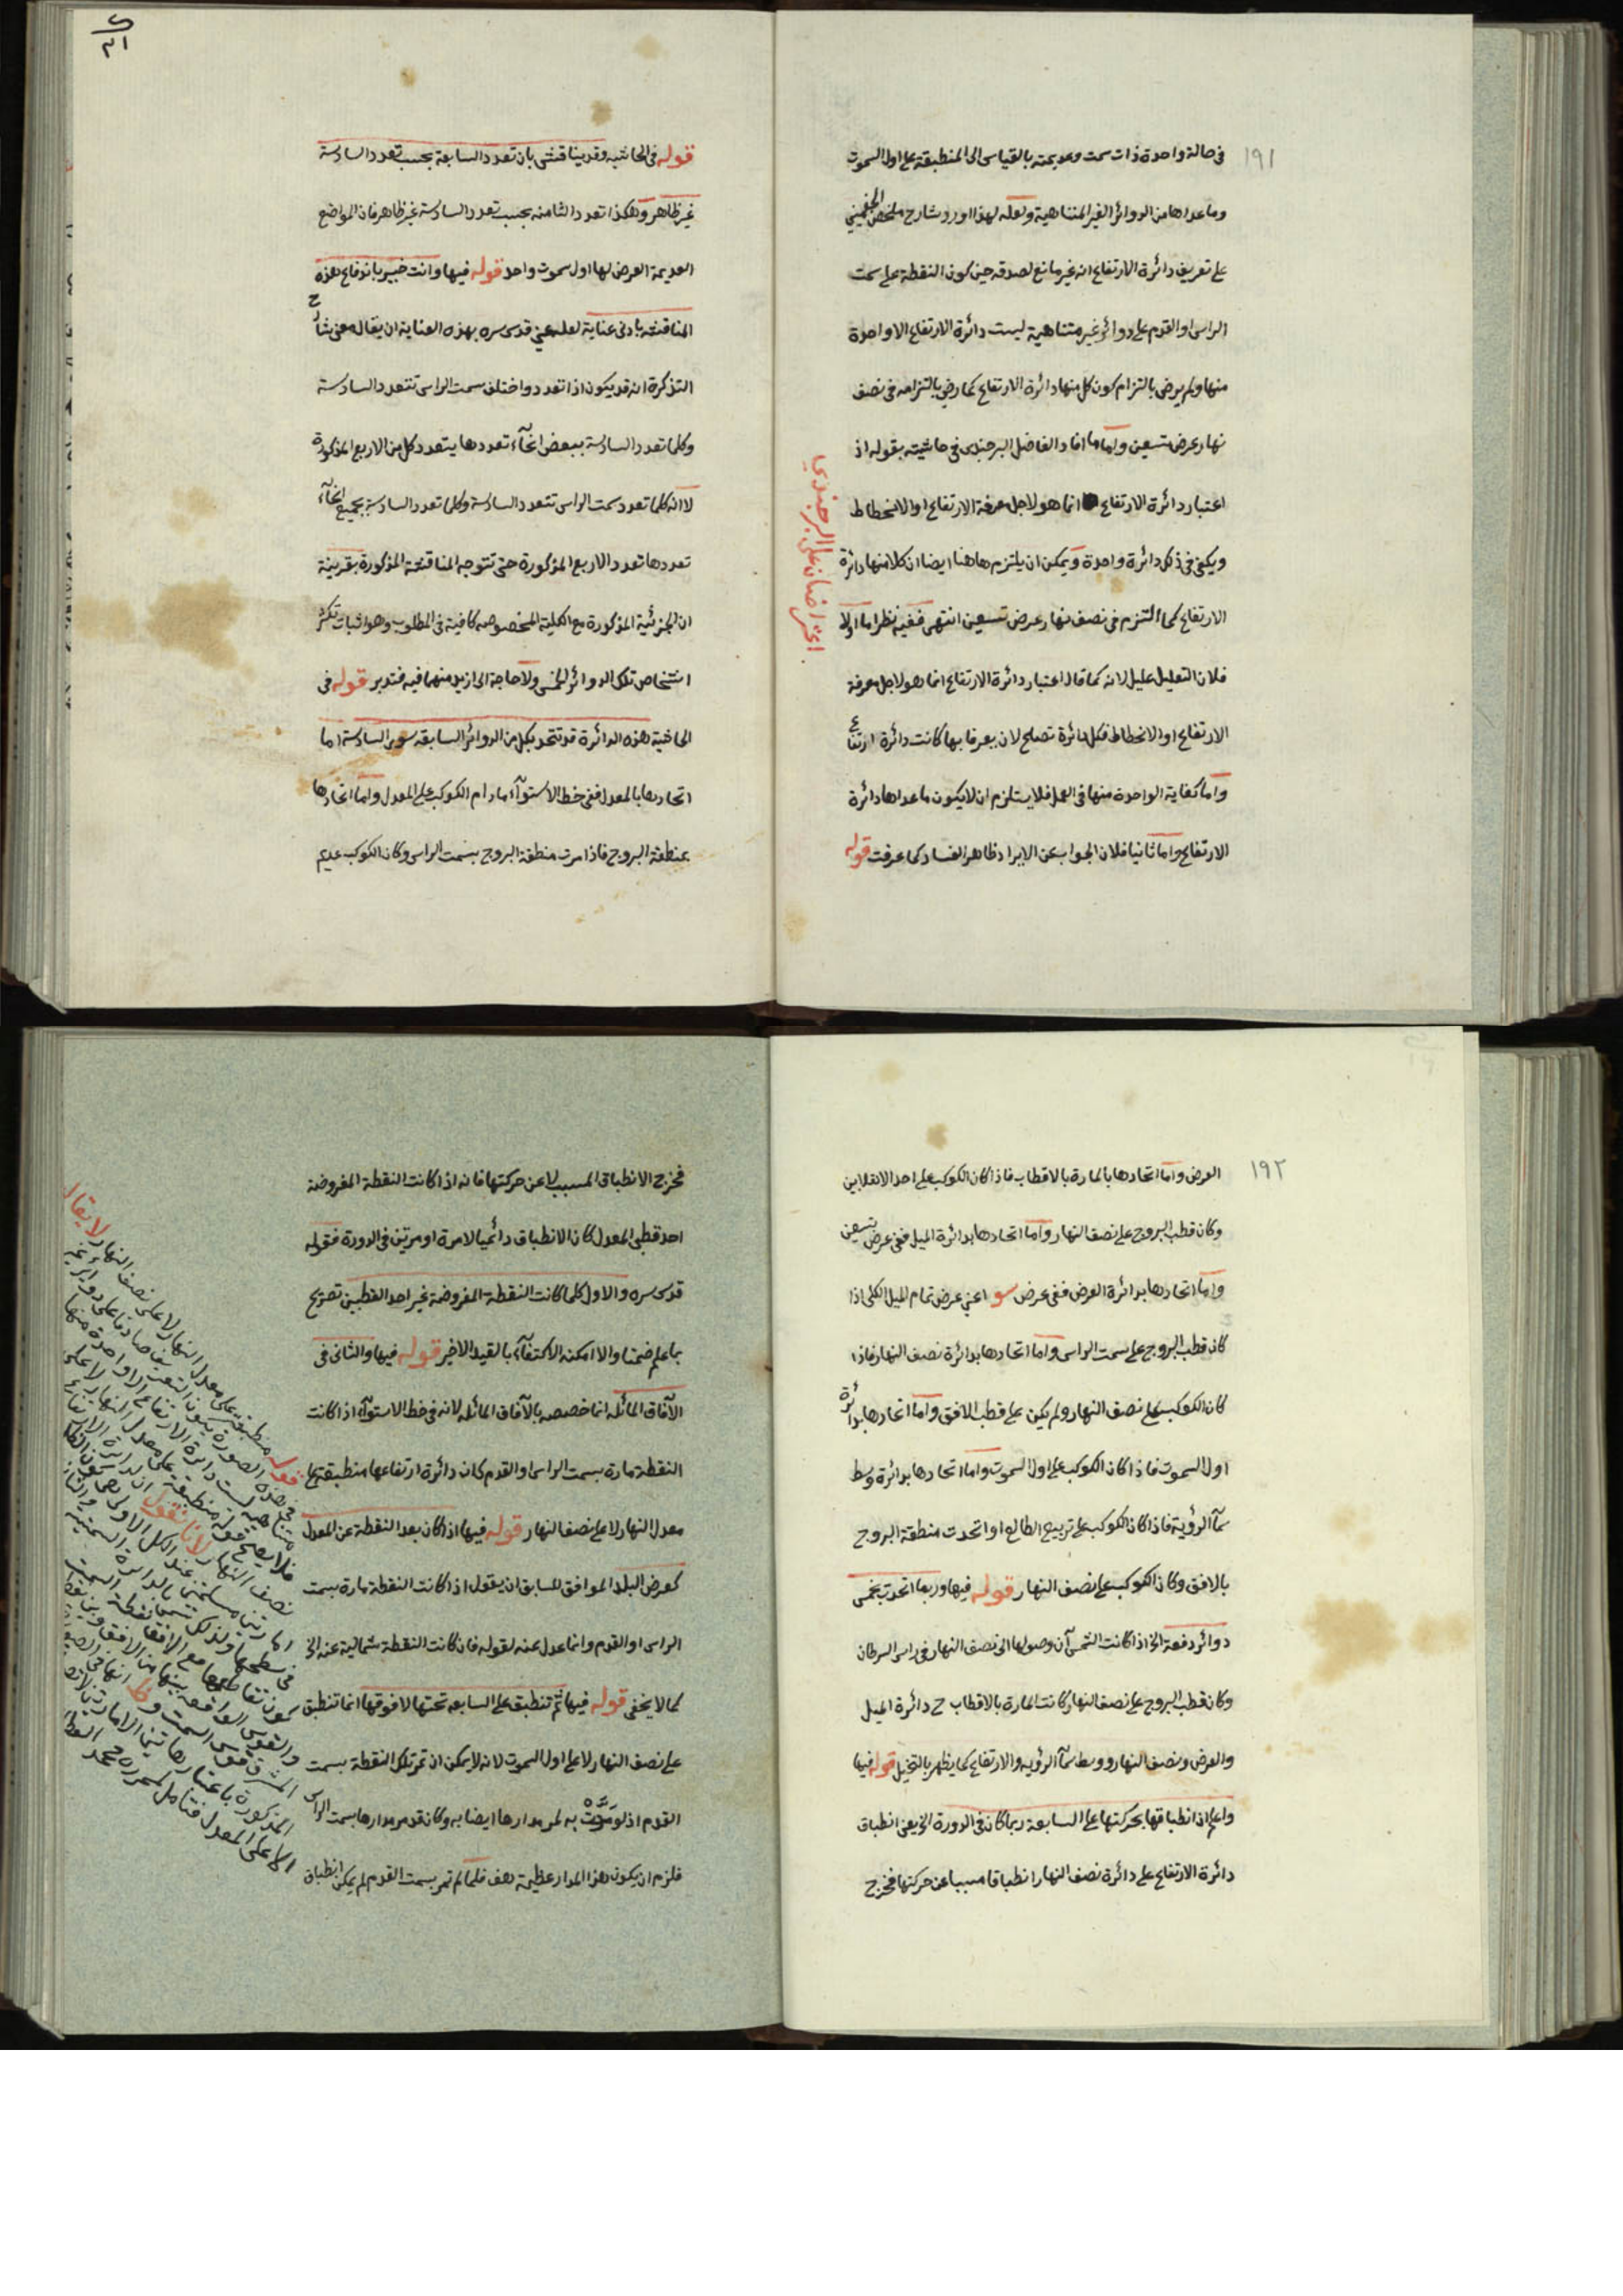 ١٩١
في حالة واحدة ذات سمت وعديمته بالقياس الى المنطبقة على اول السموت
وما عداها من الدوائر الغير المتناهية ولعله لهذا اورد شارح ملخص الجغميني
على تعريف دائرة الارتفاع انه غير مانع لصدقه حين كون النقطة على سمت
الراس او القدم على دوائر غير متناهية ليست دائرة الارتفاع الا واحدة
منها ولم يرض بالتزام كون كل منها دائرة الارتفاع كما رضي بالتزامه في نصف
نهار عرض تسعين واما ما افاد الفاضل البرجندي في حاشيته بقوله اذ
اعتبار دائرة الارتفاع انما هو لاجل معرفة الارتفاع او الانحطاط
ويكفي في ذلك دائرة واحدة ويمكن ان يلتزم هاهنا ايضا ان كلا منها دائرة
الارتفاع كما التزم في نصف نهار عرض تسعين انتهى ففيه نظر اما اولا
فلان التعليل عليل لانه كما قال اعتبار دائرة الارتفاع انما هو لاجل معرفة
الارتفاع او الانحطاط فكل دائرة تصلح لان يعرفا بها كانت دائرة ارتفاع
واما كفاية الواحدة منها في العمل فلا يستلزم ان لا يكون ما عداها دائرة
الارتفاع واما ثانيا فلان الجواب عن الايراد ظاهر الفساد كما عرفت قوله
اعتراضان على البرجندي
قوله في الحاشيه وقد يناقش بان تعدد السابعة بحسب تعدد السادسة
غير ظاهر وهكذا تعدد الثامنه بحسب تعدد السادسة غير ظاهر فان المواضع
العديمة العرض لها اول سموت واحد قوله فيها وانت خبير باندفاع هذه
المناقشه بادنى عناية لعله عني قدس سره بهذه العناية ان يقال معنى شارح
التذكرة انه قد يكون اذا تعدد واختلف سمت الراس تتعدد السادسة
وكلما تعدد السادسة ببعض انحآء تعددها يتعدد كل من الاربع المذكورة
لا انه كلما تعدد سمت الراس تتعدد السادسة وكلما تعدد السادسة بجميع انحآء
تعددها تعدد الاربع المذكورة حتى تتوجه المناقشة المذكورة بقرينة
ان الجزئية المذكورة مع الكلية المخصوصه كافية في المطلوب وهو اثبات تكثر
اشخاص تلك الدوائر الخمس ولا حاجة الى ازيد منهما فيه فتدبر قوله في
الحاشية هذه الدائرة قد تتحد بكل من الدوائر السابقه سوى السادسة اما
اتحادها بالمعدل ففي خط الاستوآء ما دام الكوكب على المعدل واما اتحادها
بمنطقة البروج فاذا مرت منطقة البروج بسمت الراس وكان الكوكب عديم
١٩٢
العرض واما اتحادها بالمارة بالاقطاب فاذا كان الكوكب على احد الانقلابين
وكان قطب البروج على نصف النهار واما اتحادها بدائرة الميل ففي عرض تسعين
واما اتحادها بدائرة العرض ففي عرض سو اعني عرض تمام الميل الكلي اذا
كان قطب البروج على سمت الراس واما اتحادها بدائرة نصف النهار فاذا
كان الكوكب على نصف النهار ولم يكن على قطب الافق واما اتحادها بدائرة
اول السموت فاذا كان الكوكب على اول السموت واما اتحادها بدائرة وسط
سمآء الرؤية فاذا كان الكوكب على تربيع الطالع او اتحدت منطقة البروج
بالافق وكان الكوكب على نصف النهار قوله فيها وربما اتحدت بخمس
دوائر دفعة الخ اذا كانت الشمس آن وصولها الى نصف النهار في راس السرطان
وكان قطب البروج على نصف النهار وكانت المارة بالاقطاب ح دائرة الميل
والعرض ونصف النهار ووسط سمآء الرؤيه والارتفاع كما يظهر بالتخيل قوله فيها
واعلم ان انطباقها بحركتها على السابعة ربما كان في الدورة الخ يعني انطباق
دائرة الارتفاع على دائرة نصف النهار انطباقا مسببا عن حركتها فخرج
فخرج الانطباق المسبب لا عن حركتها فانه اذا كانت النقطة المفروضة
احد قطبي المعدل كان الانطباق دائميا لا مرة او مرتين في الدورة فقوله
قدس سره والاول كلما كانت النقطة المفروضة غير احد القطبين تصريح
بما علم ضمنا والا امكنه الاكتفآء بالقيد الاخير قوله فيها والثاني في
الآفاق المائله انما خصصه بالآفاق المائله لانه في خط الاستوآء اذا كانت
النقطة مارة بسمت الراس او القدم كان دائرة ارتفاعها منطبقة على
معدل النهار لا على نصف النهار قوله فيها اذا كان بعد النقطة عن المعدل
كعرض البلد الموافق للسابق ان يقول اذا كانت النقطة مارة بسمت
الراس او القدم وانما عدل عنه لقوله فان كانت النقطة شمالية عنه الخ
كما لا يخفى قوله فيها ثم تنطبق على السابعة تحتها لا فوقها انما تنطبق
على نصف النهار لا على اول السموت لانه لا يمكن ان تمر تلك النقطة بسمت
القدم اذ لو مرت به لمر مدارها ايضا به وكان قد مر مدارها بسمت الراس
فلزم ان يكون هذا المدار عظيمة هف فلما لم تمر بسمت القدم لم يمكن انطباق
قوله منطبقة على معدل النهار لا على نصف النهار لا يقال